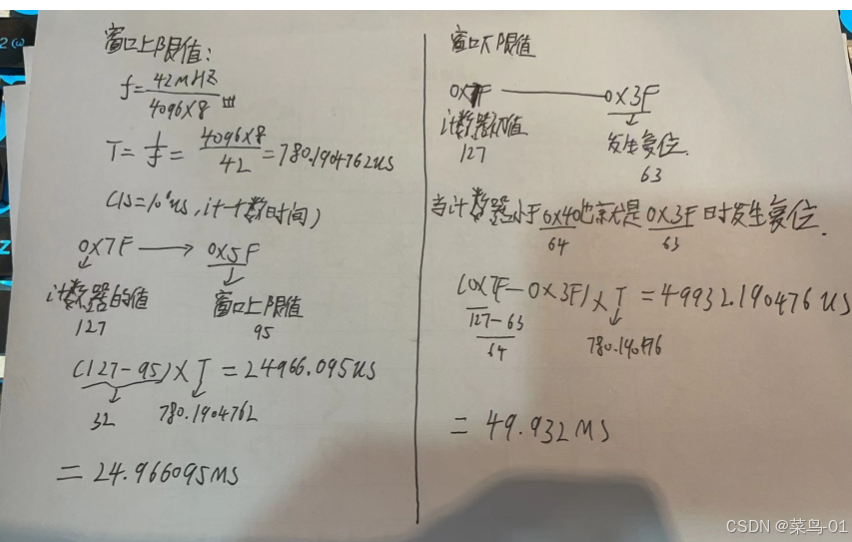 窗口上限值:
f=42MHZ/4096×8
T=1/f=4096×8/42=780.1904762us
(1s=10⁶us,计一个数时间)
0x7F→0x5F
计数器的值 窗口上限值
127 95
(127-95)×T=24966.095us
32 780.1904762
=24.966095MS
窗口下限值
0x7F——0x3F
计数器初值 发生复位.
127 63
当计数器小于0x40也就是0x3F时发生复位.
64 63
(0x7F-0x3F)×T=49932.190476us
127-63 780.190476
64
=49.932MS
CSDN @菜鸟-01